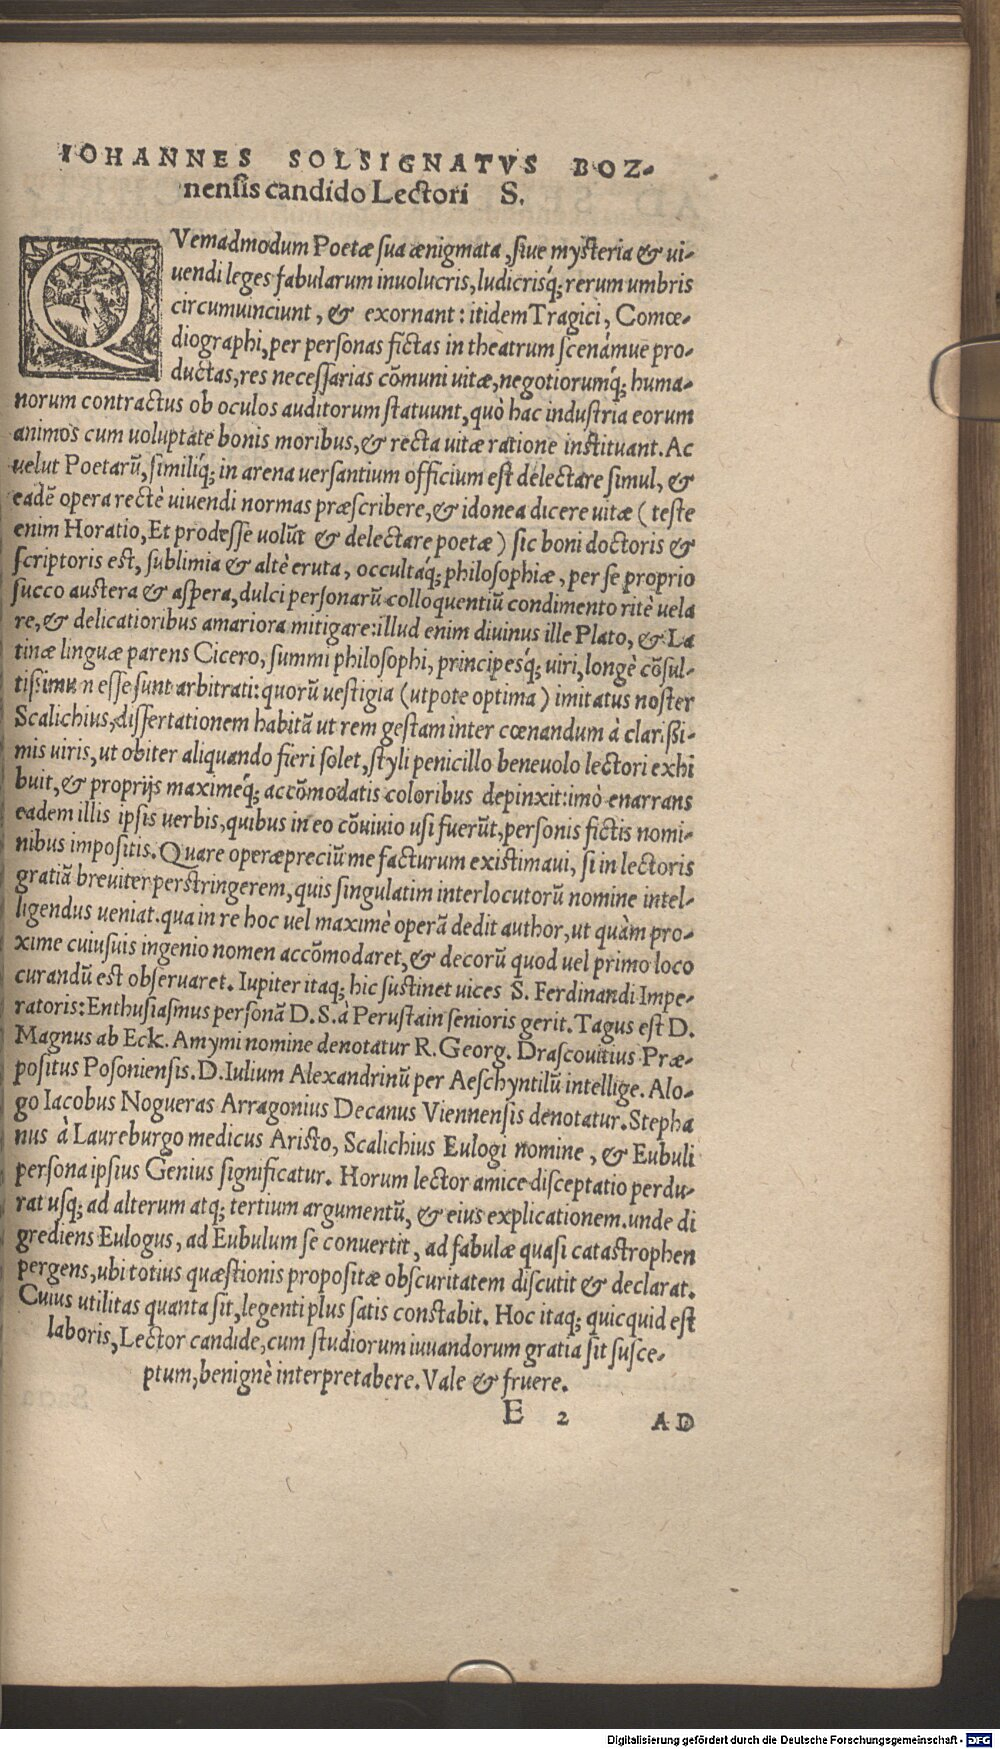 IOHANNES SOLSIGNATVS BOZ-
nensis candido Lectori S.
QVemadmodum Poetæ sua ænigmata, siue mysteria & ui-
uendi leges fabularum inuolucris, ludicrisq́; rerum umbris
circumuinciunt, & exornant: itidem Tragici, Comœ-
diographi, per personas fictas in theatrum scenámue pro-
ductas, res necessarias cōmuni uitæ, negotiorumq́; huma-
norum contractus ob oculos auditorum statuunt, quò hac industria eorum
animos cum uoluptate bonis moribus, & recta uitæ ratione instituant. Ac
uelut Poetarū, similiq́; in arena uersantium officium est delectare simul, &
eadē opera rectè uiuendi normas præscribere, & idonea dicere uitæ (teste
enim Horatio, Et prodesse uolūt & delectare poetæ) sic boni doctoris &
scriptoris est, sublimia & altè eruta, occultaq́; philosophiæ, per se proprio
succo austera & aspera, dulci personarū colloquentiū condimento ritè uela
re, & delicatioribus amariora mitigare: illud enim diuinus ille Plato, & La
tinæ linguæ parens Cicero, summi philosophi, principesq́; uiri, longè cōsul-
tissimum esse sunt arbitrati: quorū uestigia (utpote optima) imitatus noster
Scalichius, dissertationem habitā ut rem gestam inter cœnandum à clarissi-
mis uiris, ut obiter aliquando fieri solet, styli penicillo beneuolo lectori exhi
buit, & proprijs maximeq́; accōmodatis coloribus depinxit: imò enarrans
eadem illis ipsis uerbis, quibus in eo cōuiuio usi fuerūt, personis fictis nomi-
nibus impositis. Quare operæpreciū me facturum existimaui, si in lectoris
gratiā breuiter perstringerem, quis singulatim interlocutorū nomine intel-
ligendus ueniat. qua in re hoc uel maximè operā dedit author, ut quàm pro-
xime cuiusuis ingenio nomen accōmodaret, & decorū quod uel primo loco
curandū est obseruaret. Iupiter itaq; hic sustinet uices S. Ferdinandi Impe-
ratoris: Enthusiasmus personā D. S. à Perustain senioris gerit. Tagus est D.
Magnus ab Eck. Amymi nomine denotatur R. Georg. Drascouitius Præ-
positus Posoniensis. D. Iulium Alexandrinū per Aeschyntilū intellige. Alo-
go Iacobus Nogueras Arragonius Decanus Viennensis denotatur. Stepha
nus à Laureburgo medicus Aristo, Scalichius Eulogi nomine, & Eubuli
persona ipsius Genius significatur. Horum lector amice disceptatio perdu-
rat usq; ad alterum atq; tertium argumentū, & eius explicationem. unde di
grediens Eulogus, ad Eubulum se conuertit, ad fabulæ quasi catastrophen
pergens, ubi totius quæstionis propositæ obscuritatem discutit & declarat.
Cuius utilitas quanta sit, legenti plus satis constabit. Hoc itaq; quicquid est
laboris, Lector candide, cum studiorum iuuandorum gratia sit susce-
ptum, benignè interpretabere. Vale & fruere.
E 2 AD
Digitalisierung gefördert durch die Deutsche Forschungsgemeinschaft - DFG